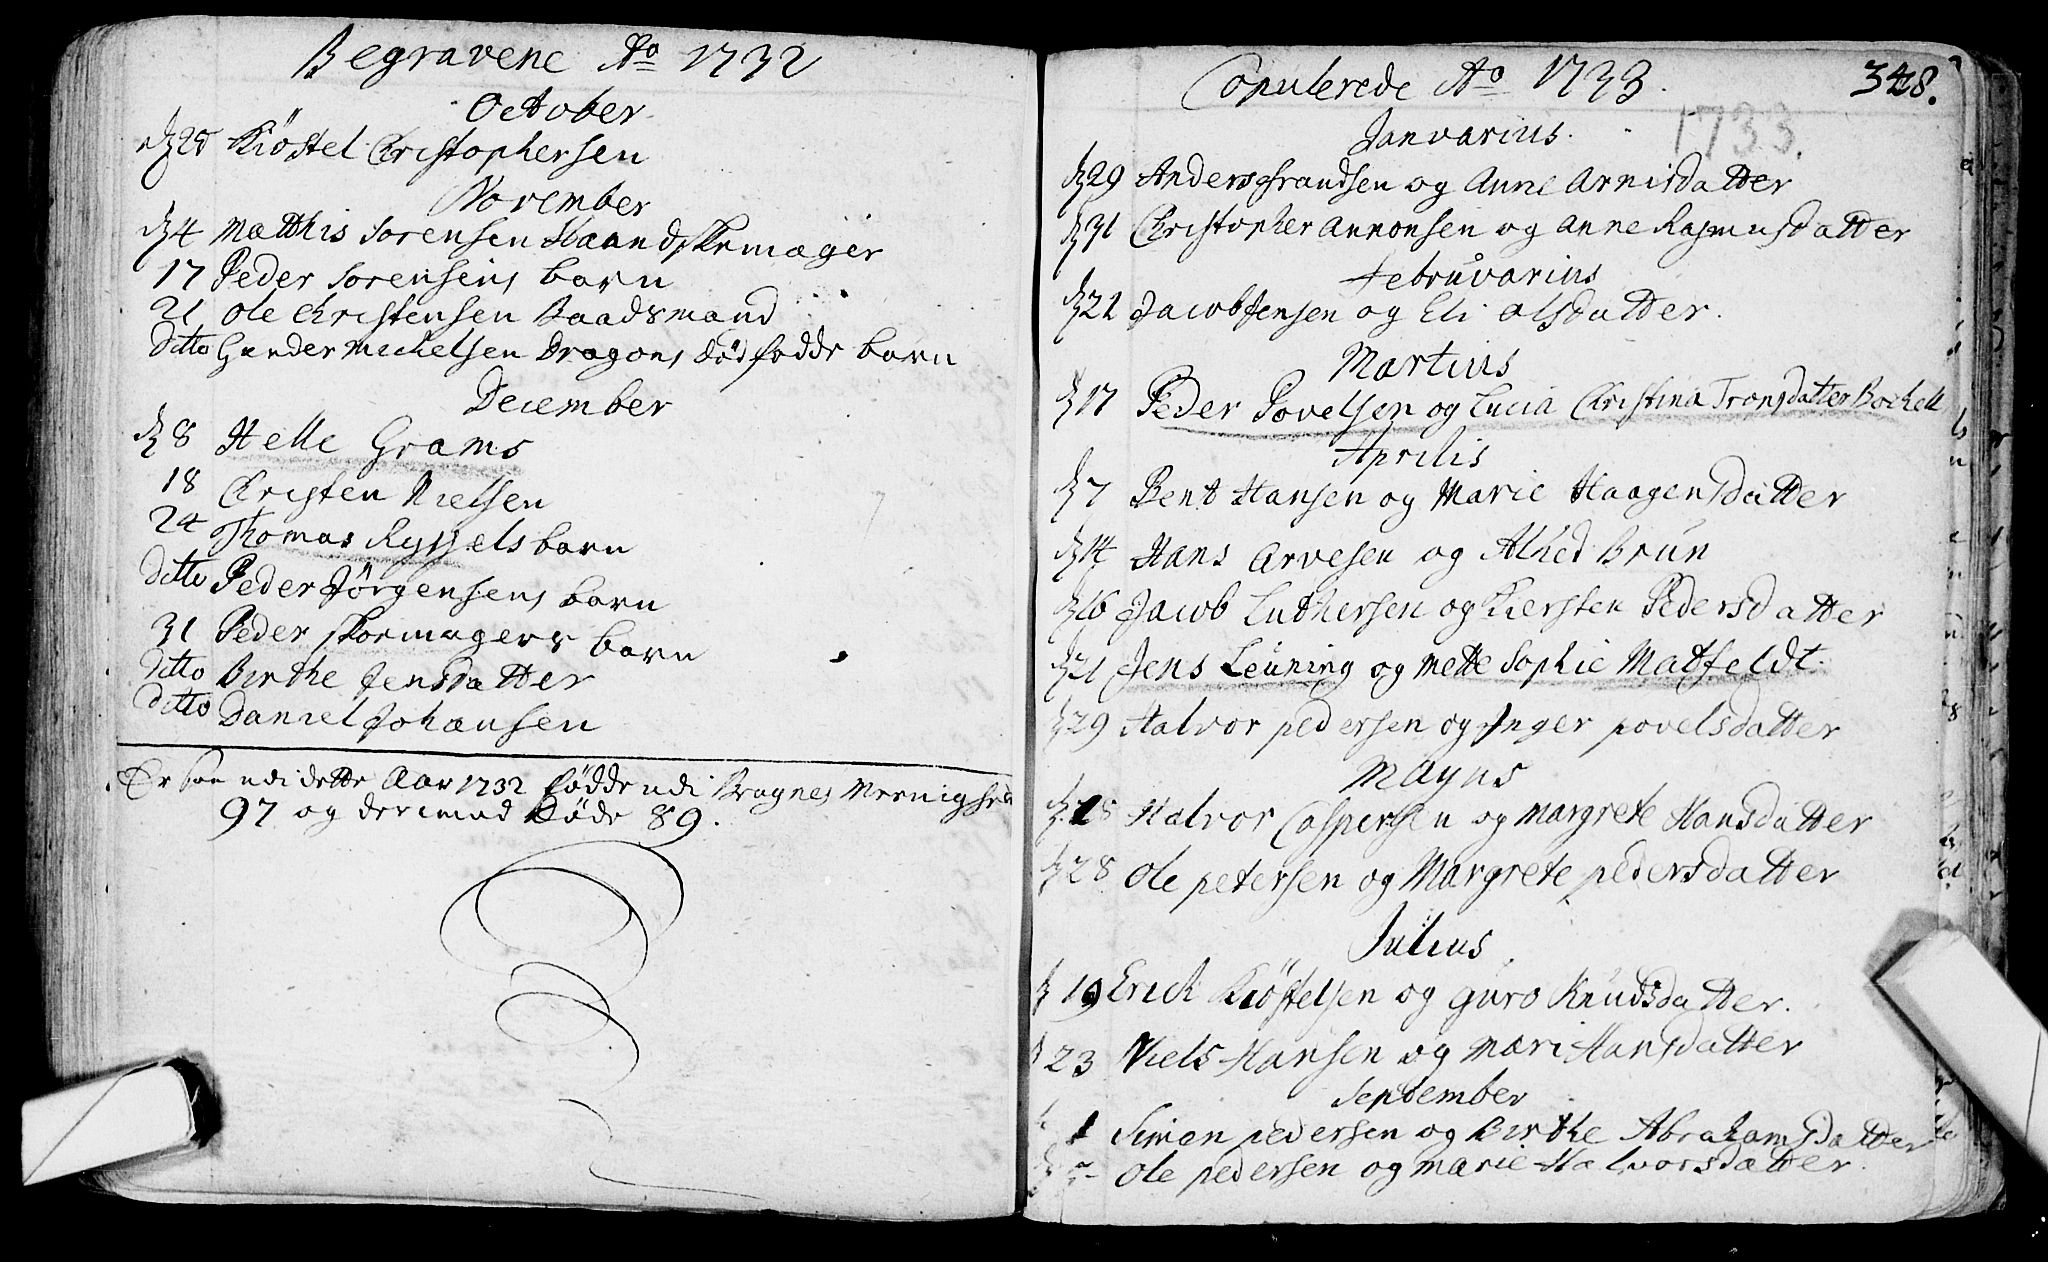 Begravene Ao 1732
October
d 25 Kiöstel Christophersen
November
d 4 Matthis Sorensen Haandskemager
17 Peder Sorensens barn
21 Ole Christensen Baadsmand
ditto Gunder Michelsen Dragons dödfödde barn
December
d 8 Helle Grams
18 Christen Nielsen
24 Thomas Ryssels barn
ditto Peder Jörgensens barn
31 Peder skoemagers barn
ditto Birthe Jensdatter
ditto Daniel Johansen
Er saa udi dette Aar 1732 födde udi Bragnes Meenighed
97 og derimod Döde 89.
Copulerede Ao 1733. 348.
1733.
Janvarius.
d 29 Anders frandsen og Anne Arnisdatter
d 31 Christopher Annonsen og Anne Rasmusdatter
Februvarius
d 22 Jacob Jensen og Eli Olsdatter.
Martius
d 17 Peder Povelsen og Lucia Christina Tronsdatter Bochell
Aprilis
d 7 Bent Hansen og Marie Haagensdatter
d 14 Hans Arvesen og Alhed Brun
d 16 Jacob Luthersen og Kiersten Pedersdatter
d 21 Jens Leuning og Mette Sophie Matfeldt.
d 29 Halvor pedersen og Inger povelsdatter
Mayus
d 28 Halvor Caspersen og Margrete Hansdatter
d 28 Ole petersen og Margrete pedersdatter
Julius
d 19 Erick Kiöstelsen og Guro Knudsdatter.
d 23 Niels Hansen og Mari Hansdatter
September
1 Simen pedersen og Birthe Abrahamsdatter
Ole pedersen og Marie Halvorsdatter.